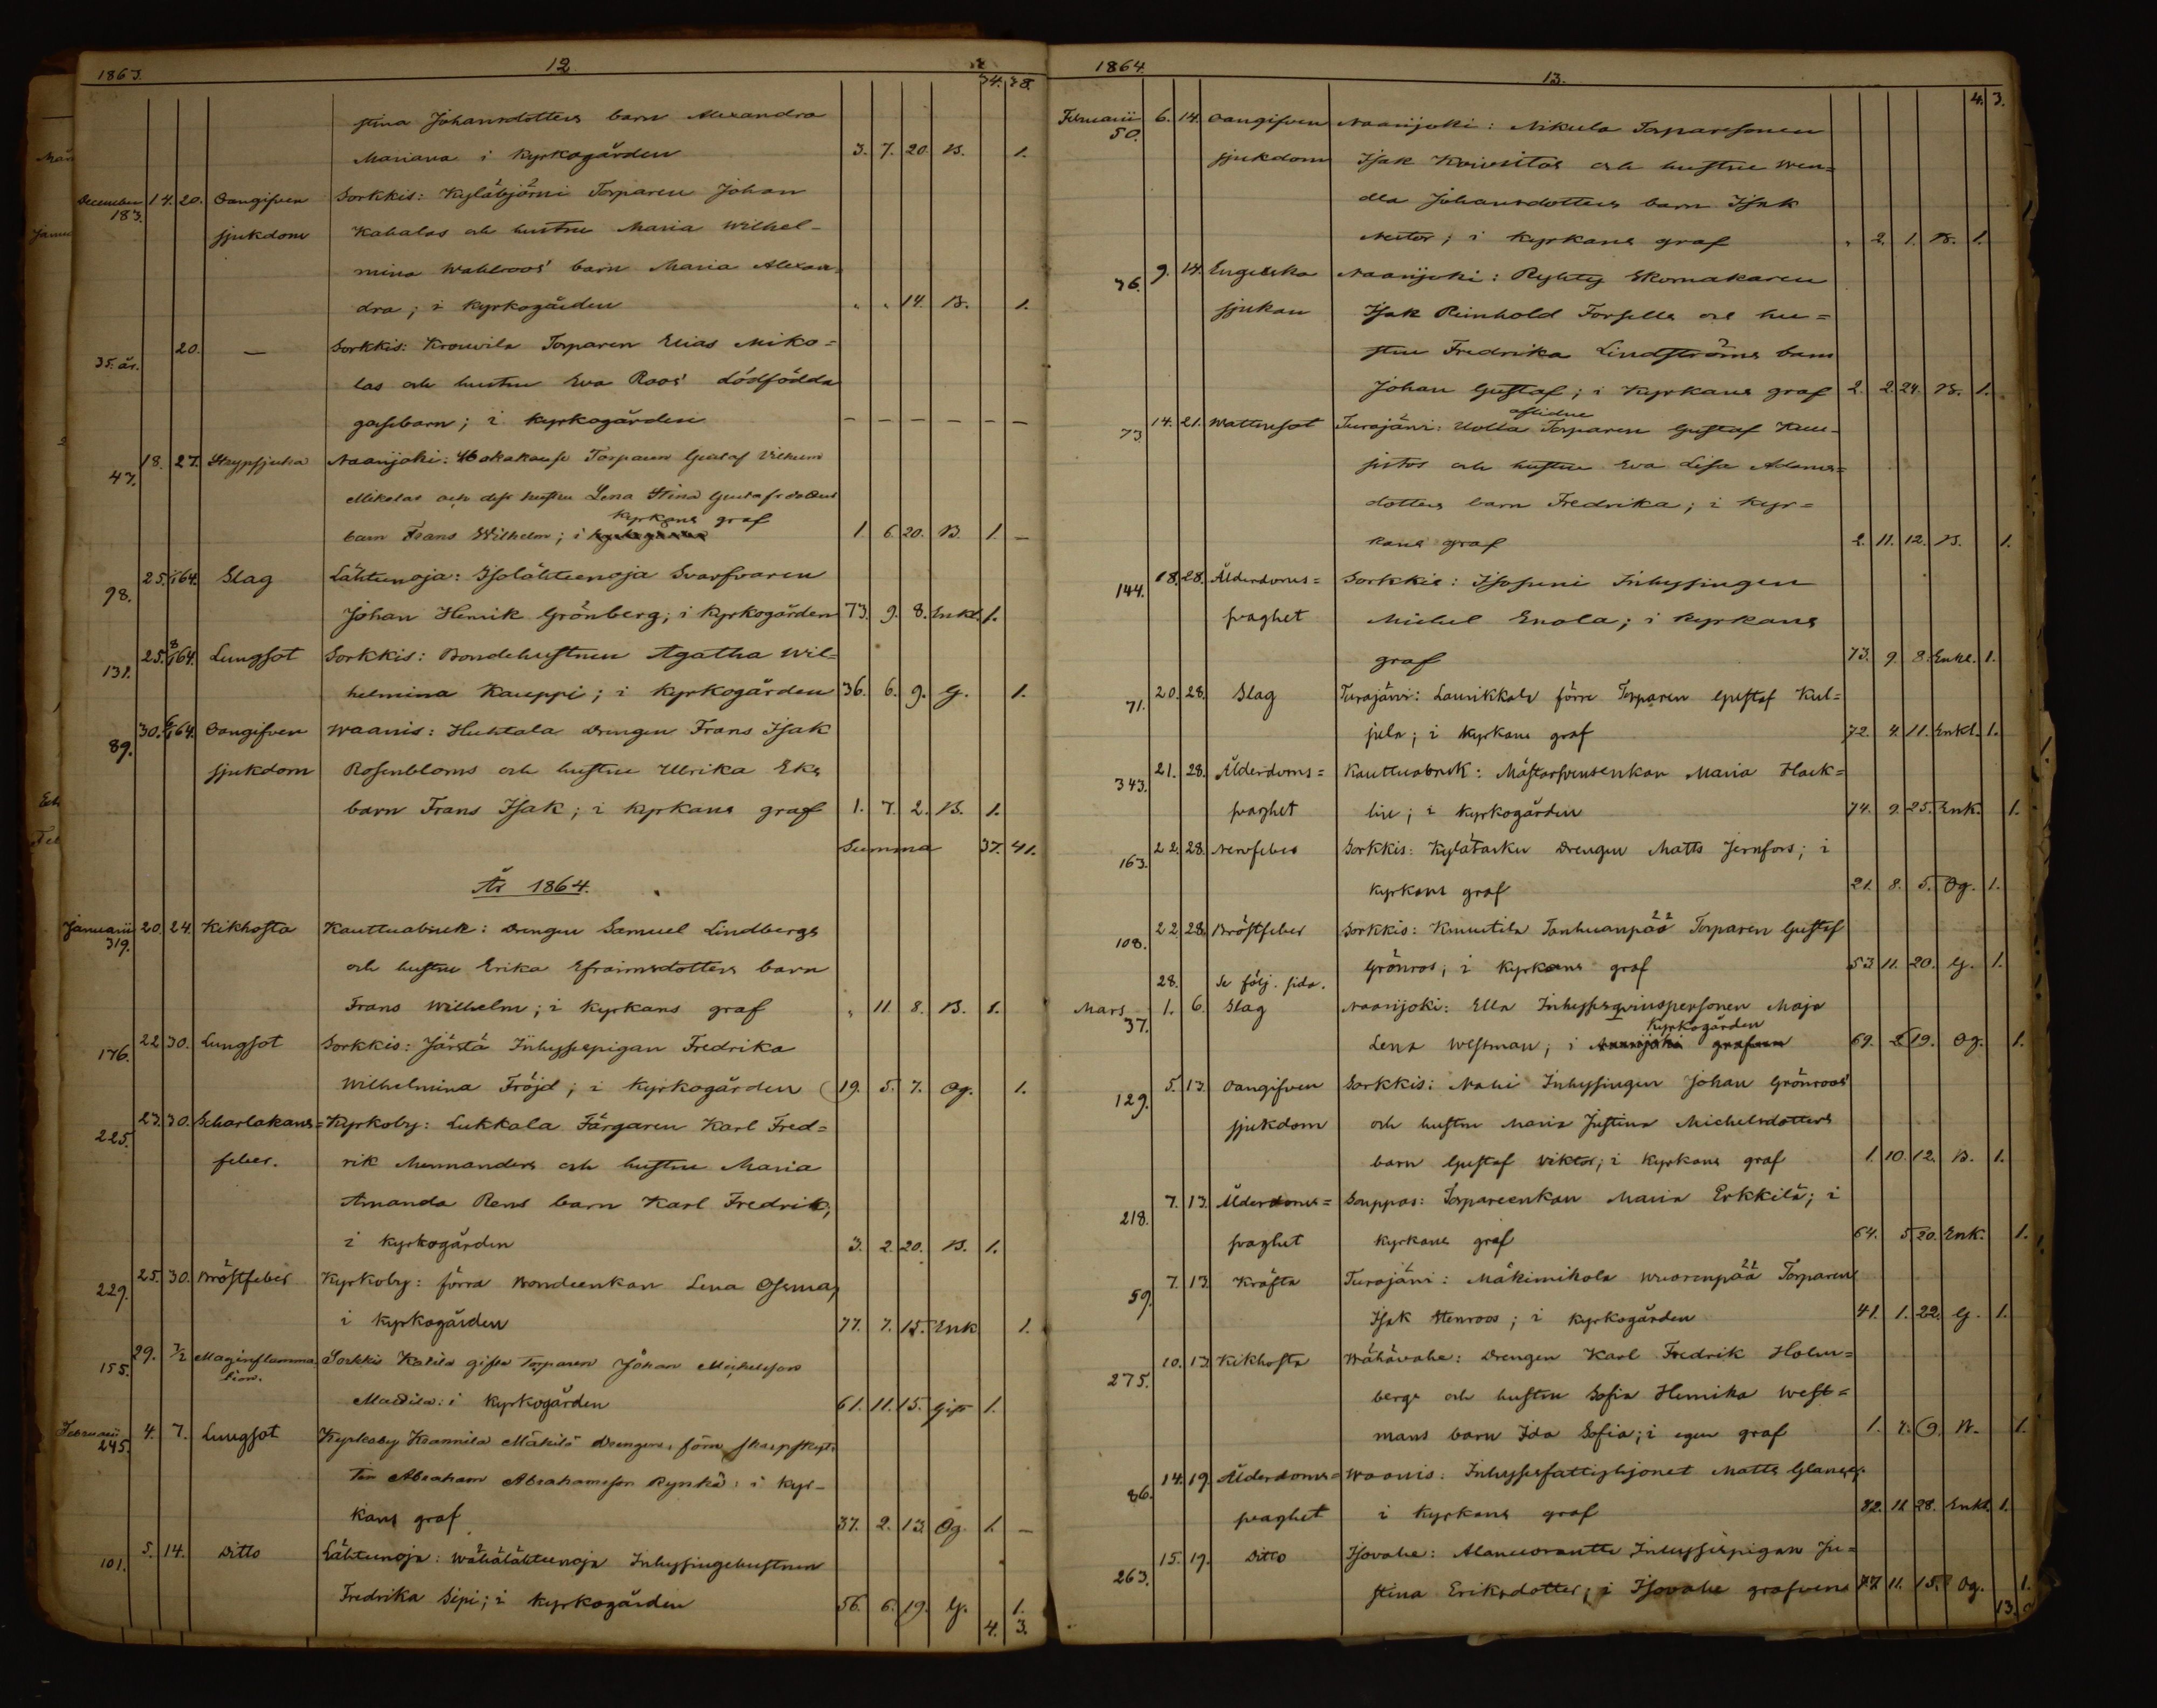 1863. 12.
34. 38.
stina Johansdotters barn Alexandra
Mariana i kyrkogården 3. 7. 20. B. 1.
December 183. 14. 20. Oangifven Sorkkis: Kyläbjörni Torparen Johan
sjukdom Kahalas och hustru Maria Wilhel-
mina Wahlroos' barn Maria Alexan-
dra; i kyrkogården " " 14. B. 1.
35. år. 20. — Sorkkis: Krouwila Torparen Elias Miko=
las och hustru Eva Roos' dödfödda
gossebarn; i kyrkogården — — — — — —
47. 18. 27. Strypsjuka Naarijoki: Torparen Gustaf Vilhelm
Mikolas och dess hustru Lena Stina Gustafsdotters
barn Frans Wilhelm; i kyrkans graf 1. 6. 20. B. 1. —
98. 25. 1/64. Slag Lähteenoja: Isolähteenoja Svarfvaren
Johan Henrik Grönberg; i kyrkogården 73. 9. 8. Enkl. 1.
131. 25. 8/1 64. Lungsot Sorkkis: Bondehustrun Agatha Wil=
helmina Kauppi; i kyrkogården 36. 6. 9. G. 1.
89. 30. 6/1 64. Oangifven Waanis: Huhtala Drengen Frans Isak
sjukdom Rosenbloms och hustru Ulrika Eks
barn Frans Isak; i kyrkans graf 1. 7. 2. B. 1.
Summa 37. 41.
År 1864.
Januarii 319. 20. 24. Kikhosta Kauttuabruk: Drengen Samuel Lindbergs
och hustru Erika Efraimsdotters barn
Frans Wilhelm; i kyrkans graf " 11. 8. B. 1.
176. 22. 30. Lungsot Sorkkis: Järstä Inhysespigan Fredrika
Wilhelmina Fröjd; i kyrkogården 19. 5. 7. Og. 1.
225. 23. 30. Scharlakans= Kyrkoby: Lukkala Färgaren Karl Fred=
feber. rik Mennanders och hustru Maria
Amanda Rens barn Karl Fredrik;
i kyrkogården 3. 2. 20. B. 1.
229. 25. 30. Bröstfeber Kyrkoby: förra Bondeenkan Lena Ojsma,
i kyrkogården 77. 7. 15. Enk 1.
155. 29. 7/2 Maginflamma Sorkkis Katila gifte Torparen Johan Michelsson
tion. Mattila: i kyrkogården 61. 11. 15. Gift 1.
Februarii 245. 4. 7. Lungsot Kyrkoby Kaannila Mäkilä Drengen, förra skarpskyt-
ten Abraham Abrahamsson Rynkä: i kyr-
kans graf 37. 2. 13. Og. 1. —
101. 5. 14. Ditto Lähteenoja: Wähälähteenoja Inhysingehustrun
Fredrika Sipi; i kyrkogården 56. 6. 19. G. 1.
4. 3.
1864. 13.
4. 3.
Februarii 50. 6. 14. Oangifven Naarijoki: Nikula Torparesonen
sjukdom Isak Koivistos och hustru Wen=
dla Johansdotters barn Isak
Nestor; i kyrkans graf " 2. 1. B. 1.
36. 9. 14. Engelska Naarijoki: Ryhtig Skomakaren
sjukan Isak Reinhold Forsells och hu=
stru Fredrika Lindströms barn
Johan Gustaf; i kyrkans graf 2. 2. 24. B. 1.
73. 14. 21. Wattusot Turajärvi: Uolla aflidne Torparen Gustaf Kuu-
sistos och hustru Eva Lisa Adams=
dotters barn Fredrika; i kyr=
kans graf 2. 11. 12. B. 1.
144. 18. 28. Ålderdoms= Sorkkis: Isosuni Inhysingen
svaghet Michel Enola; i kyrkans
graf 73. 9. 8. Enkl. 1.
71. 20. 28. Slag Turajärvi: Laurikkala förre Torparen Gustaf Kul=
jula; i kyrkans graf 72. 4. 11. Enkl. 1.
343. 21. 28. Ålderdoms= Kauttuabruk: Mästersvensenkan Maria Hack=
svaghet lin; i kyrkogården 74. 9. 25. Enk. 1.
163. 22. 28. Nervfeber Sorkkis: Kylätasku Drengen Matts Jernfors; i
kyrkans graf 21. 8. 5. Og. 1.
108. 22. 28. Bröstfeber Sorkkis: Knuutila Tanhuanpää Torparen Gustaf
Grönros; i kyrkans graf 53. 11. 20. G. 1.
28. Se följ. sida.
Mars 37. 1. 6. Slag Naarijoki: Ella Inhysesqvinspersonen Maja
Lena Westman; i kyrkogården 69. 5. 19. Og. 1.
129. 5. 13. Oangifven Sorkkis: Nahi Inhysingen Johan Grönroos'
sjukdom och hustru Maria Justina Michelsdotters
barn Gustaf Viktor; i kyrkans graf 1. 10. 12. B. 1.
218. 7. 13. Ålderdoms= Souppas: Torpareenkan Maria Erkkilä; i
svaghet kyrkans graf 64. 5. 20. Enk. 1.
59. 7. 13. Kräfta Turajärvi: Mäkimikola Wuorenpää Torparen
Isak Stenroos; i kyrkogården 41. 1. 22. G. 1.
275. 10. 13. Kikhosta Wähävahe: Drengen Karl Fredrik Holm=
bergs och hustru Sofia Henrika West=
mans barn Ida Sofia; i egen graf 1. 7. 9. B. 1.
86. 14. 19. Ålderdoms= Waanis: Inhysesfattighjonet Matts Glans;
svaghet i kyrkans graf 82. 11. 28. Enkl. 1.
263. 15. 19. Ditto Isovahe: Alanenrantti Inhysespigan Ju=
stina Eriksdotter; i Isovahe grafven 77. 11. 15. Og. 1.
13.